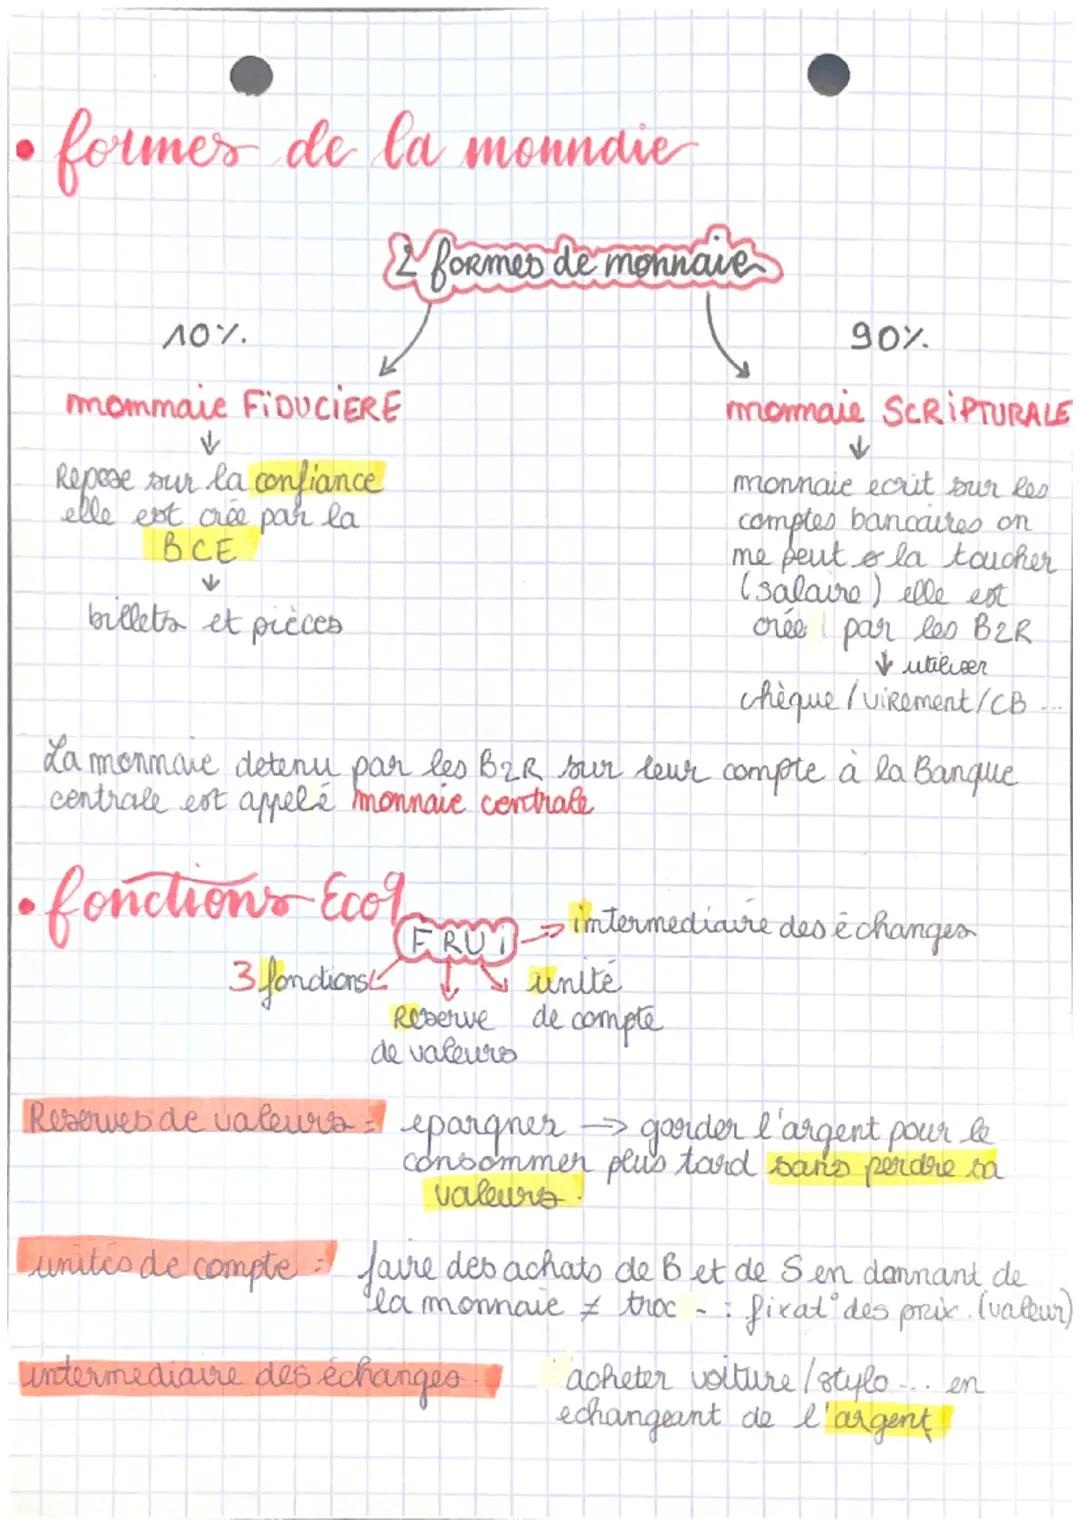 • formes de la monndie
2 formes de monnaie
10%. 90%.
monnaie FiDUCiERE
↓
Repose sur la confiance
elle est crée par la
BCE
↓
billets et pièces
monnaie SCRiPTURALE
↓
monnaie ecrit sur les
comptes bancaires on
ne peut la toucher
(salaire) elle est
crée par les B2R
↓ utiliser
chèque / viRement / CB ...
La monnaie detenu par les B2R sur leur compte à la Banque
centrale est appelé monnaie centrale
• fonctions Eco
FRUi → intermediaire des échanges
3 fonctions unité
Reserve de compte
de valeurs
Reserves de valeurs = epargner → garder l'argent pour le
consommer plus tard sans perdre sa
valeurs.
unités de compte = faire des achats de B et de S en donnant de
la monnaie ≠ troc - : fixat° des prix. (valeur)
intermediaire des échanges acheter voiture / stylo ... en
echangeant de l'argent